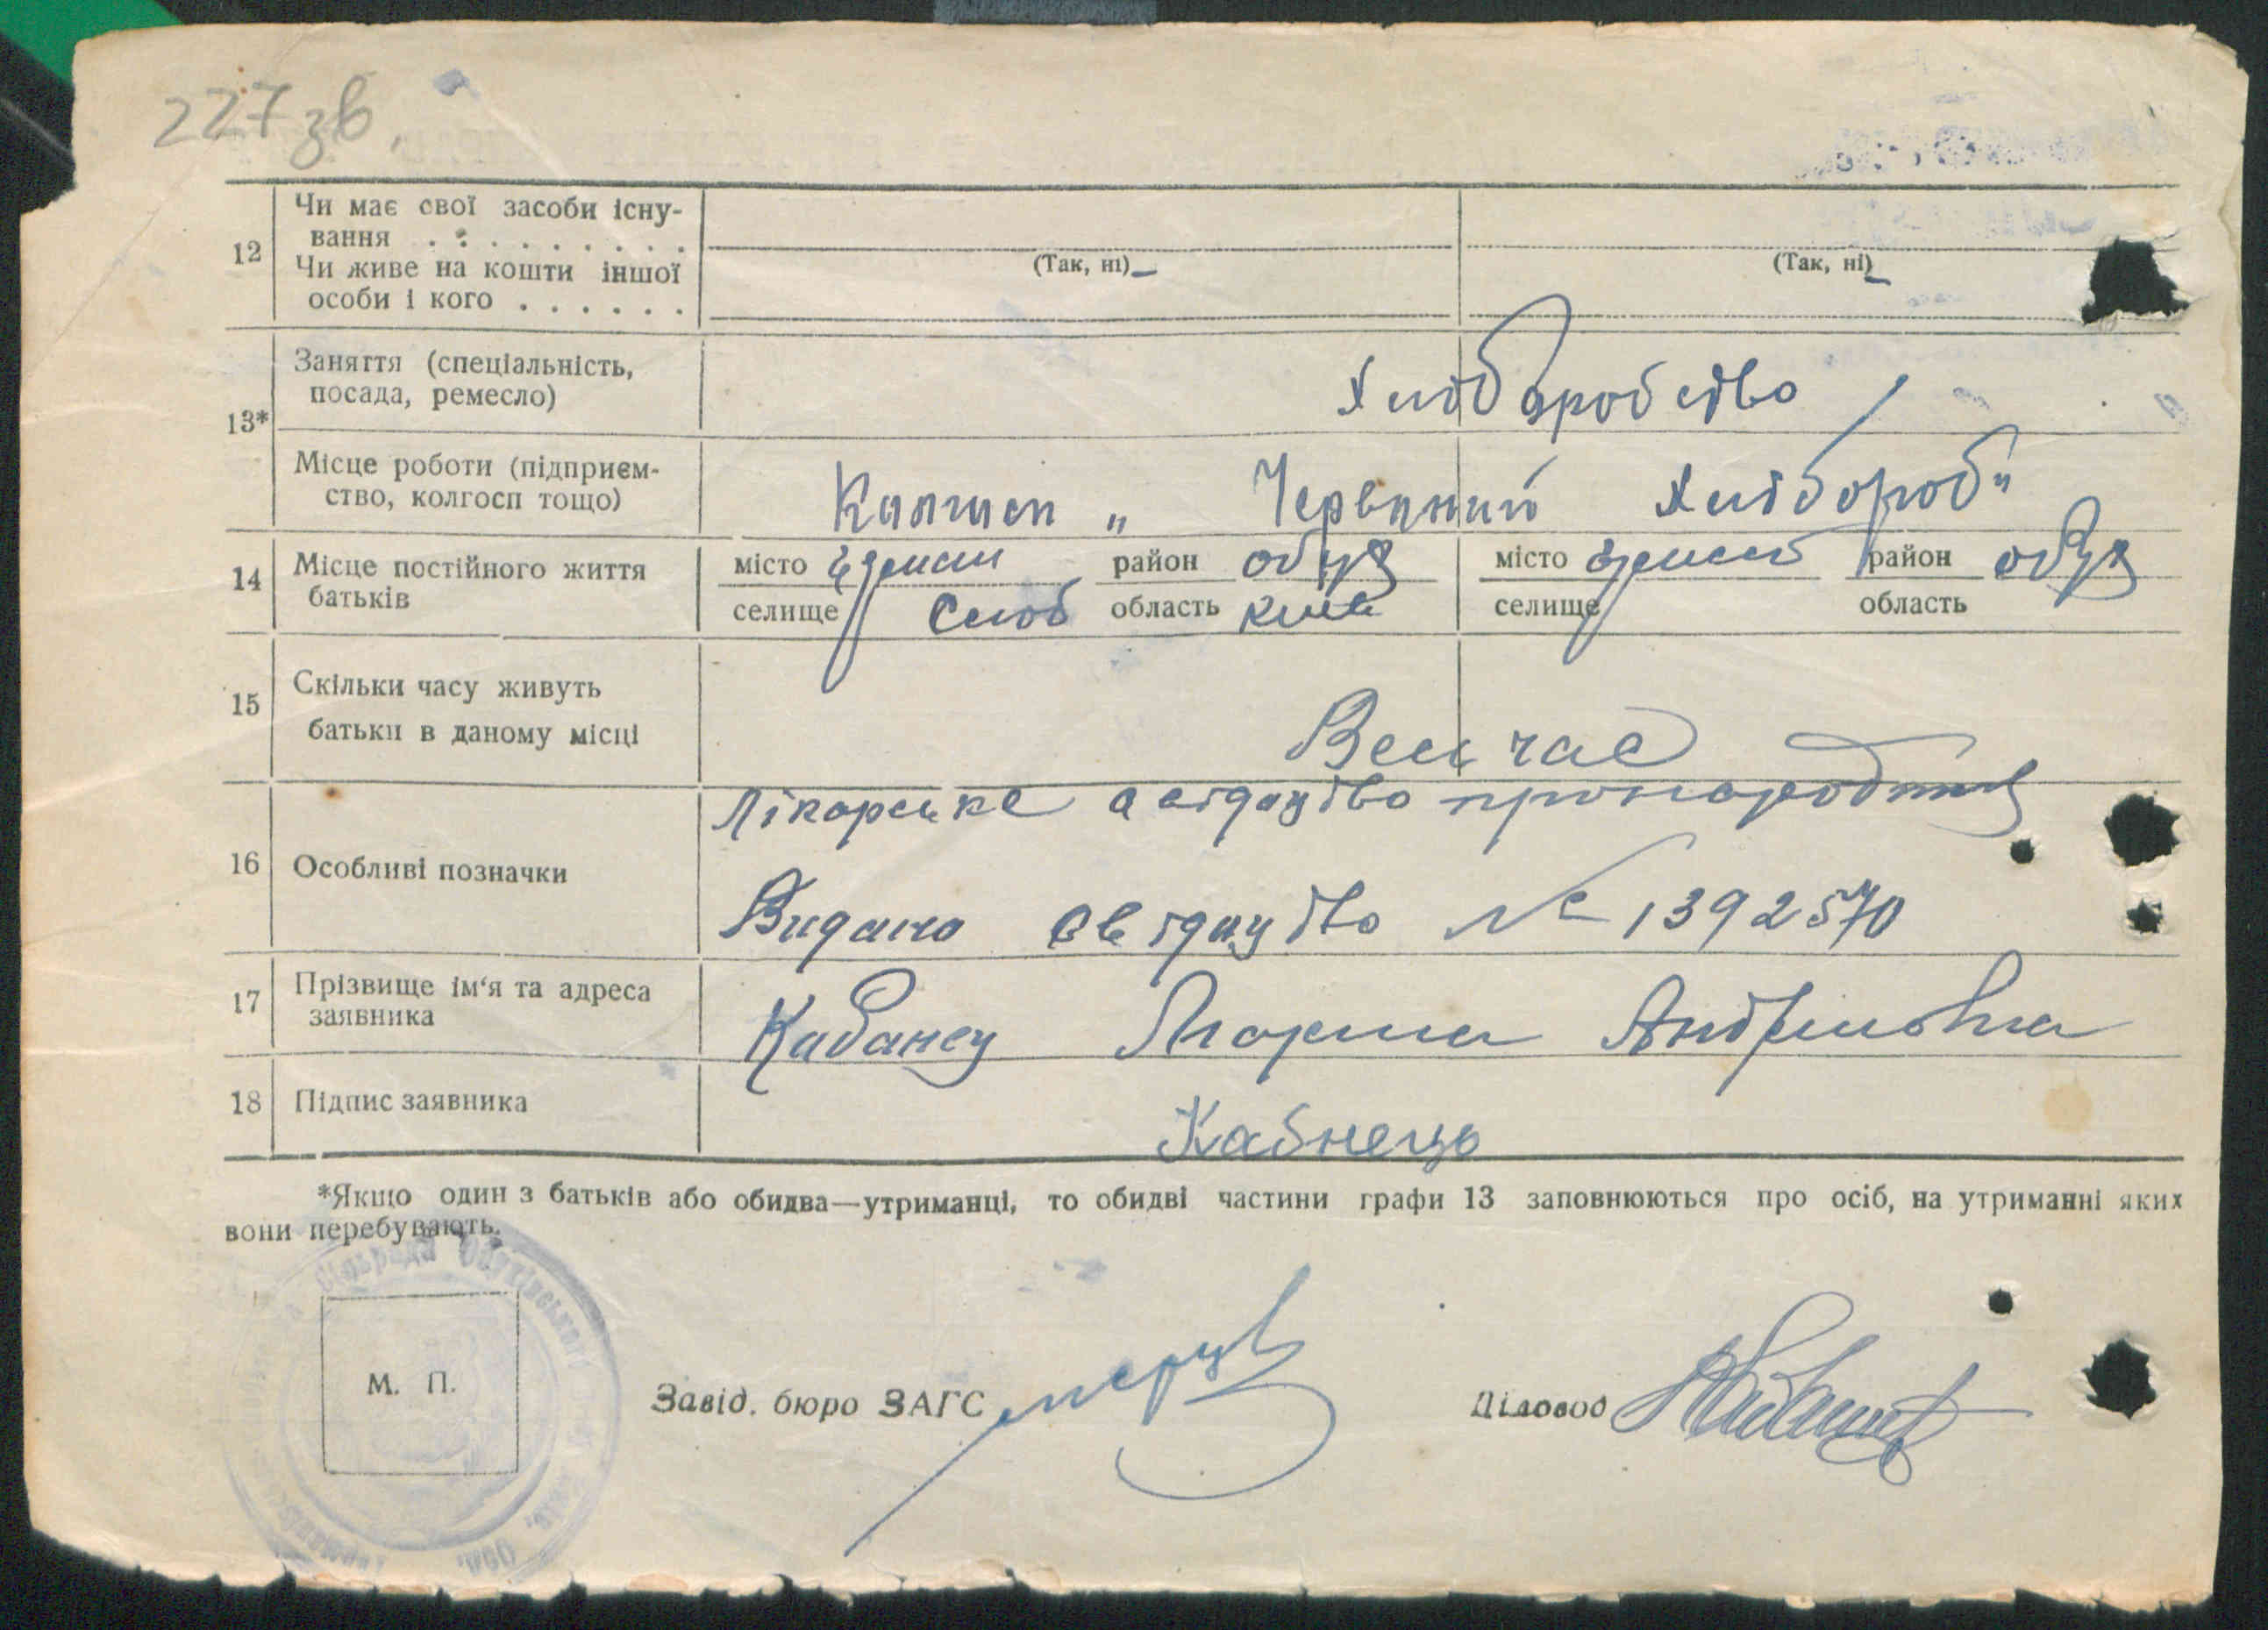 227 зв.
12
Чи має свої засоби існу-
вання . . . . . . . . .
Чи живе на кошти іншої
особи і кого . . . . . .
(Так, ні)
(Так, ні)
13*
Заняття (спеціальність,
посада, ремесло)
Хліборобство
Місце роботи (підприєм-
ство, колгосп тощо)
Колгосп „ Червоний Хлібороб"
14
Місце постійного життя
батьків
місто район обух
селище Слоб область київ
місто район обух
селище область
15
Скільки часу живуть
батьки в даному місці
Весь час
16
Особливі позначки
Лікарське свідоцтво
Видано свідоцтво № 1392570
17
Прізвище ім'я та адреса
заявника
Кабанец Марта Андріївна
18
Підпис заявника
Кабнець
*Якщо один з батьків або обидва—утриманці, то обидві частини графи 13 заповнюються про осіб, на утриманні яких
вони перебувають.
М. П.
Завід. бюро ЗАГС
Діловод